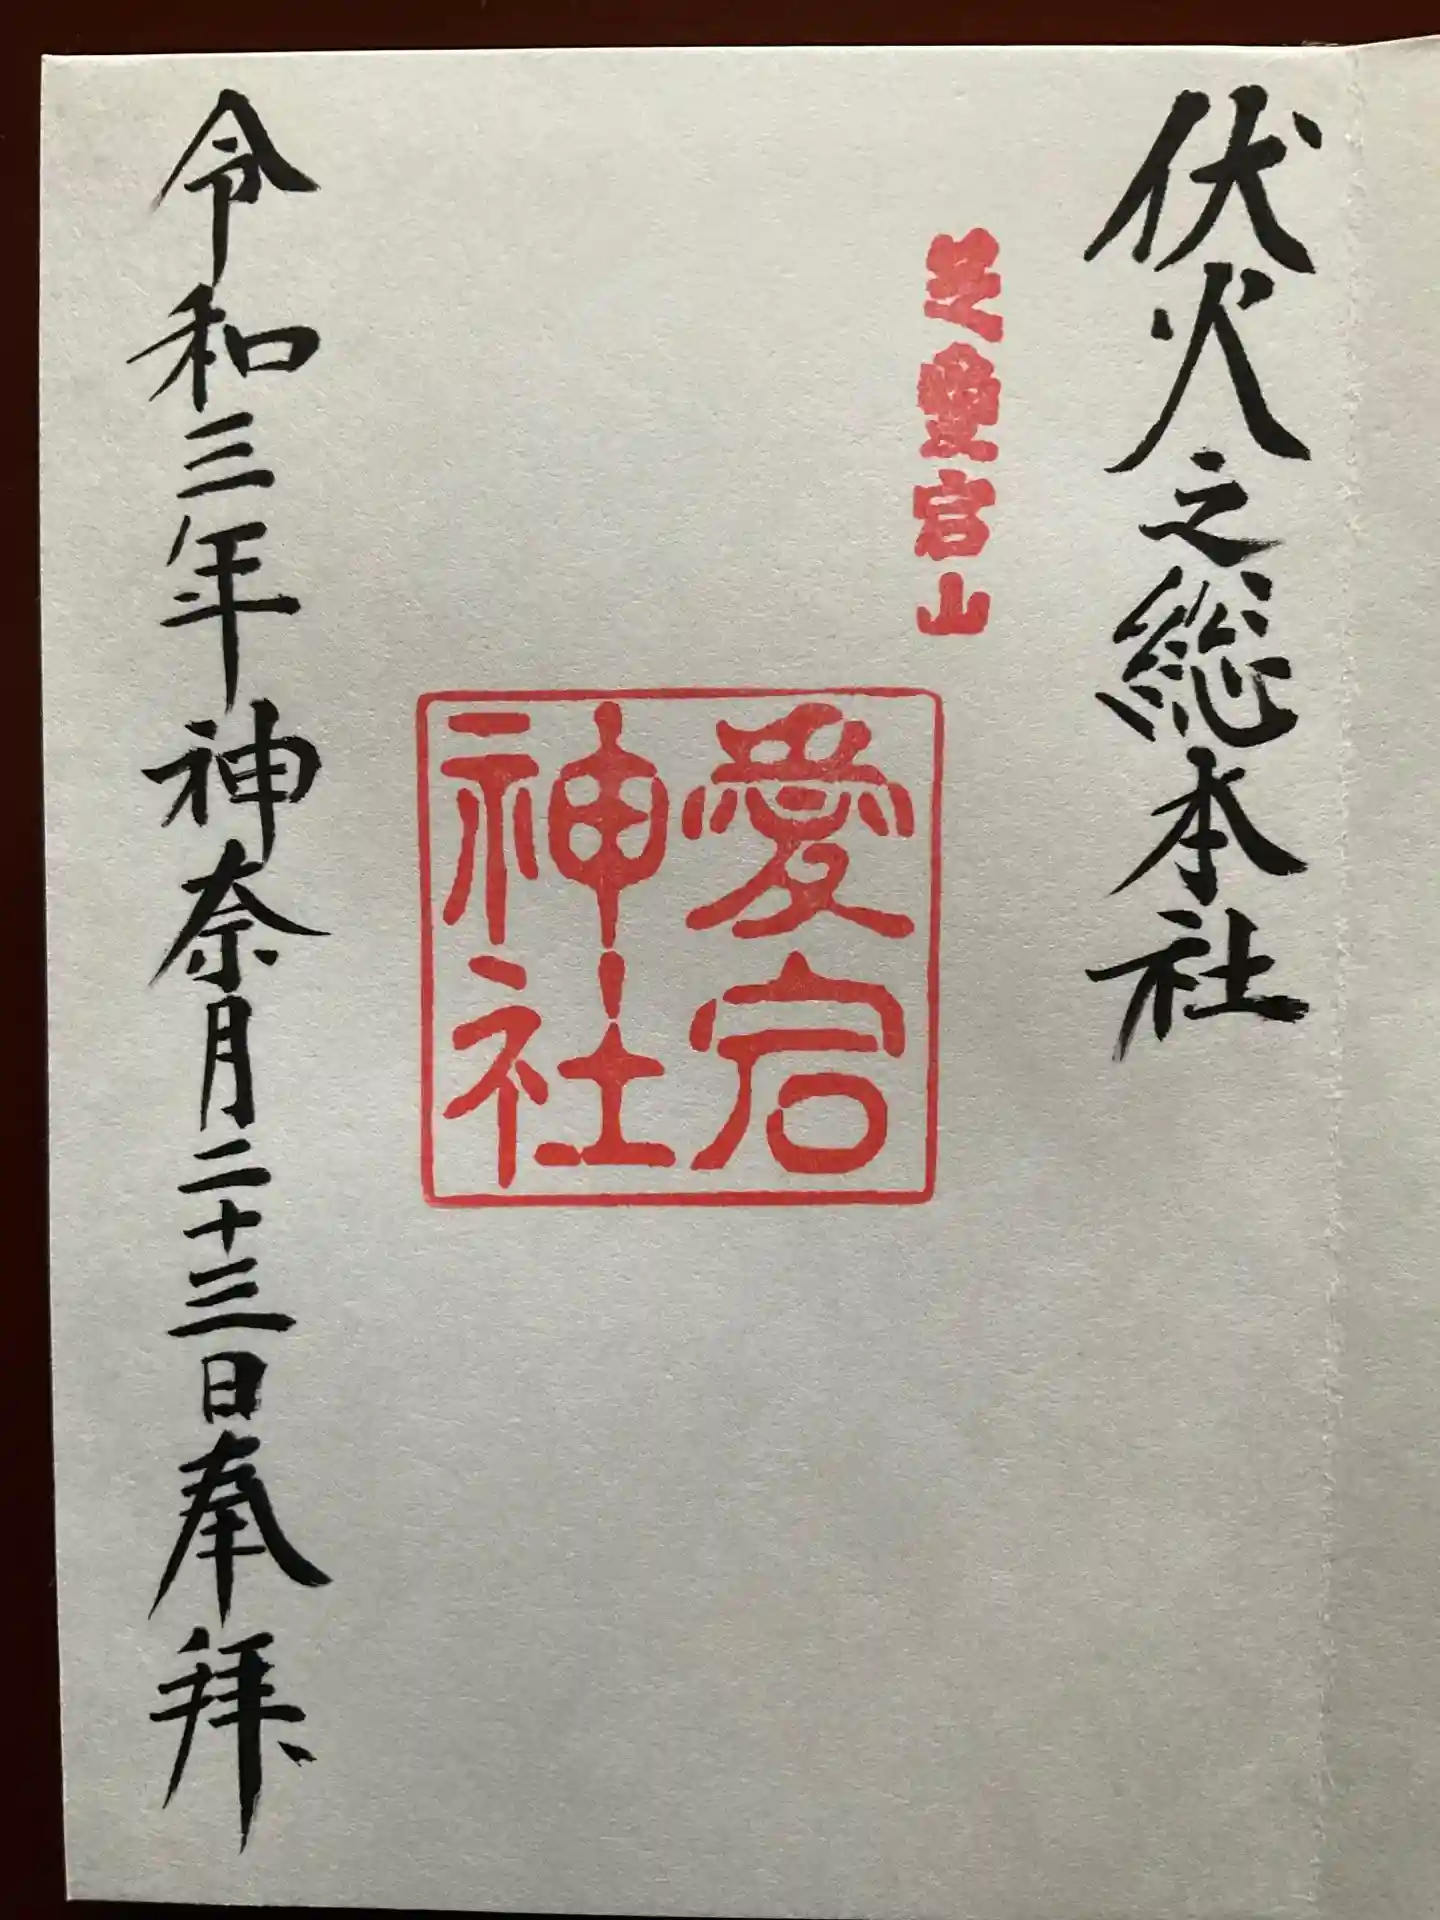 伏火之総本社
芝愛宕山
愛宕
神社
令和三年神奈月二十三日奉拝